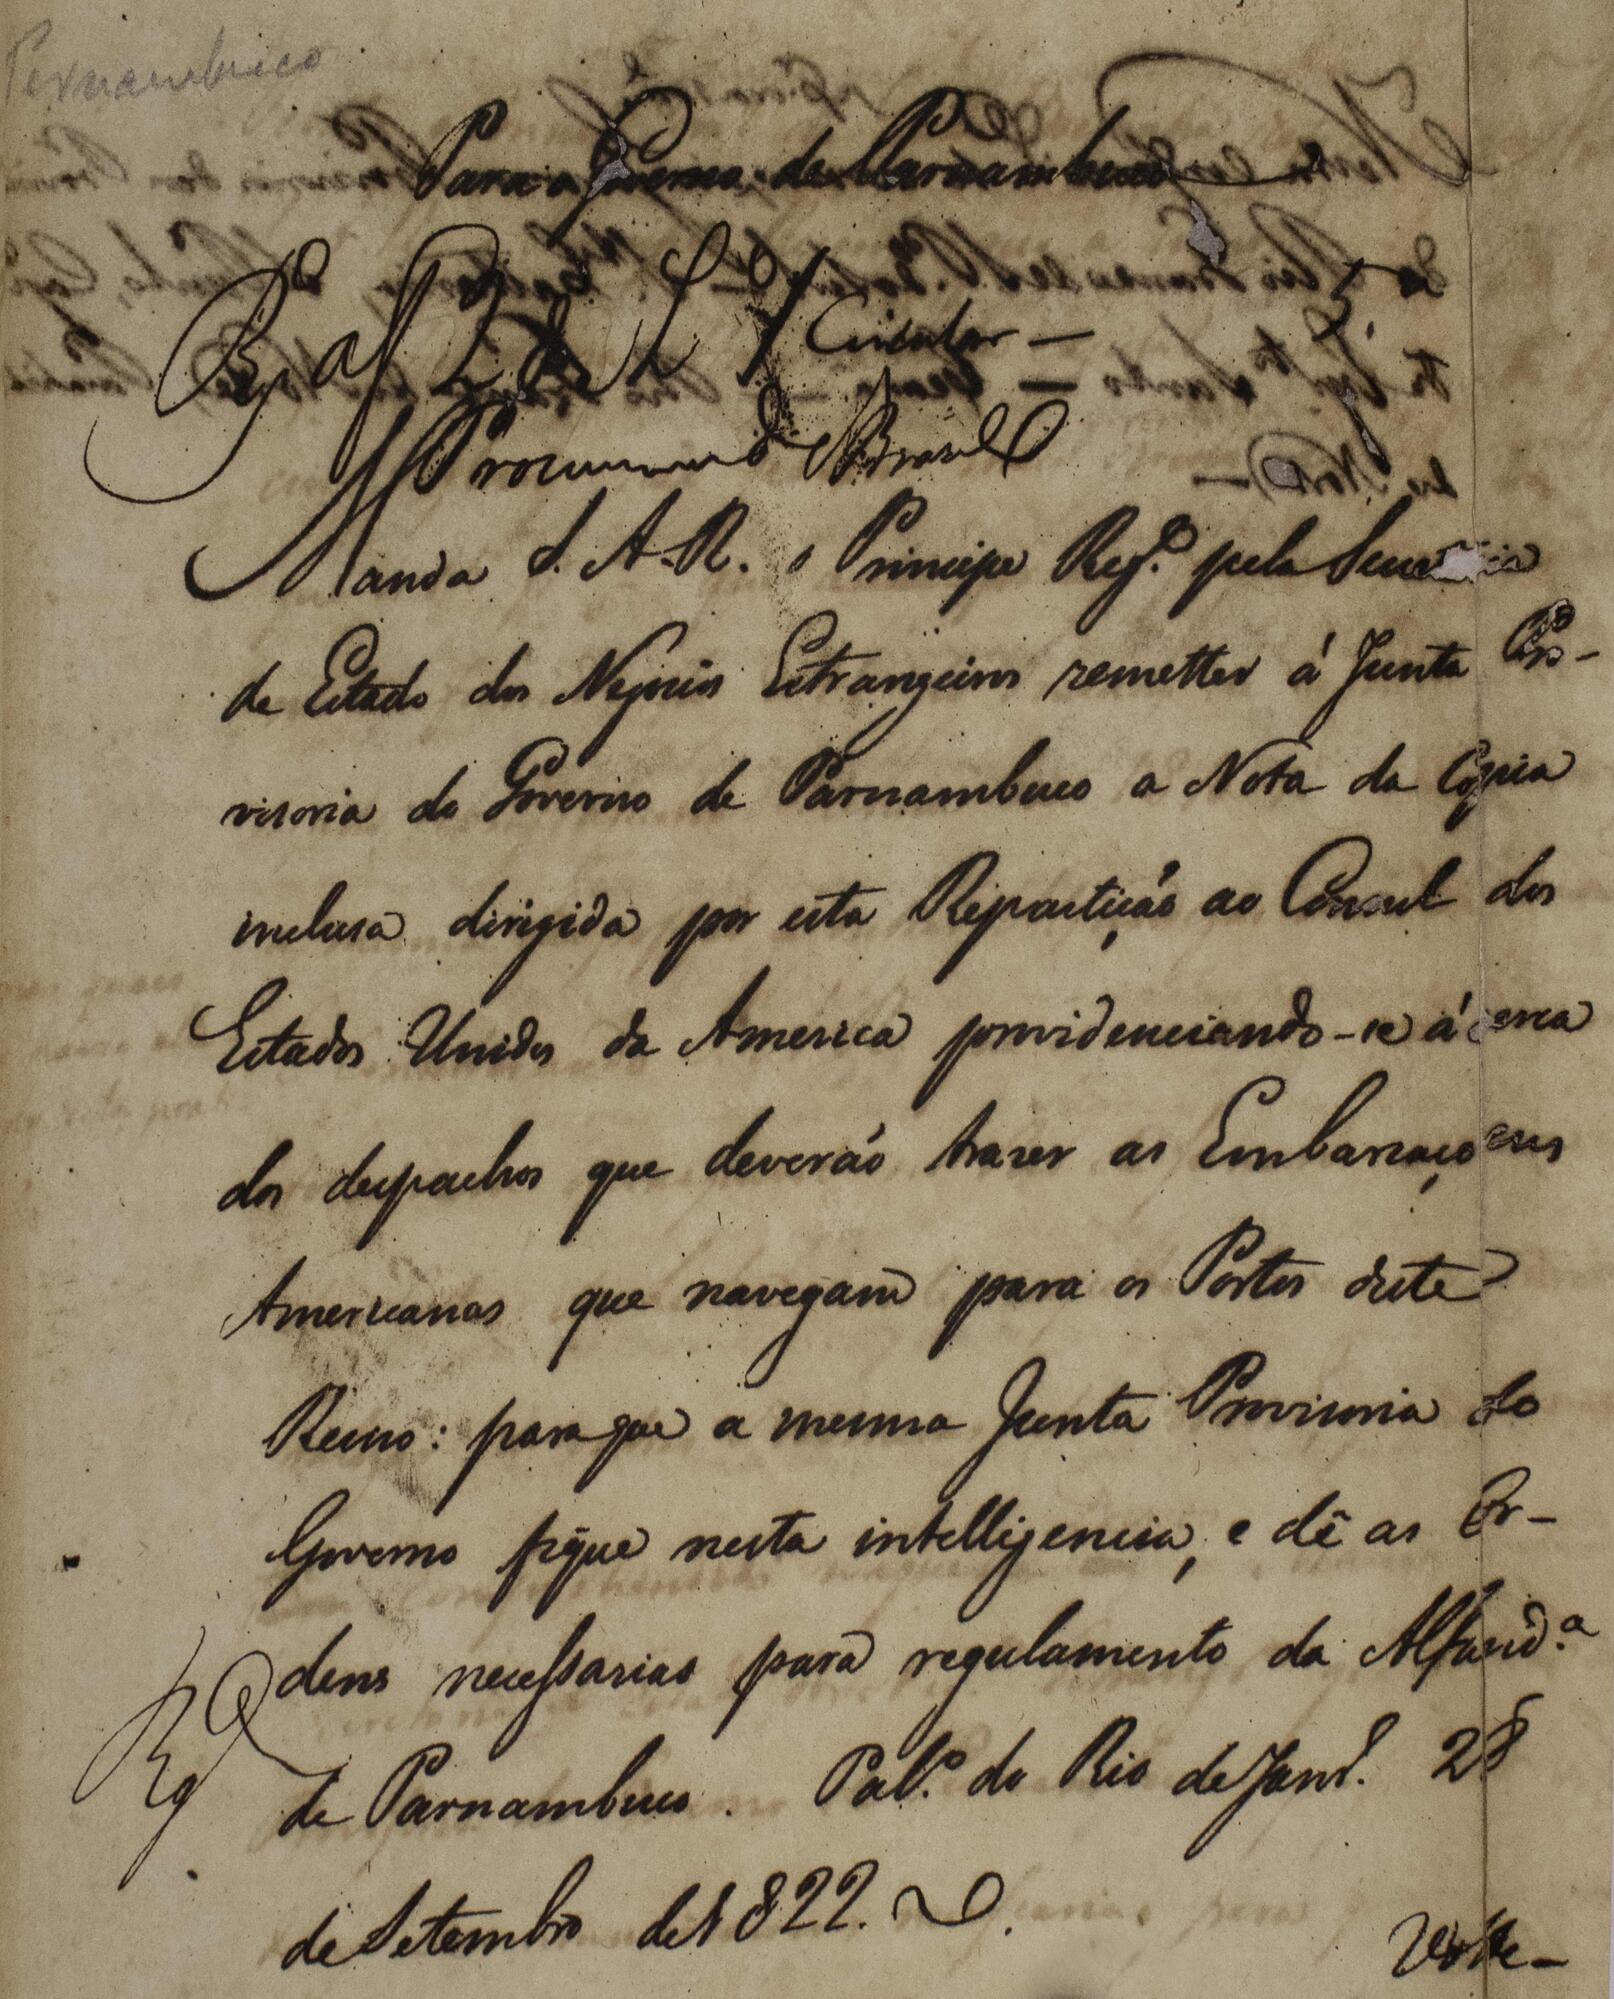 Pernambuco
Para o Governo de Parnambuco
Circular —
Brasil
Manda S. A. R. o Principe Reg.e pela Secretaria
de Estado dos Negocios Estrangeiros remetter á Junta Pro-
visoria do Governo de Parnambuco a Nota da Copia
inclusa dirigida por esta Repartiçaõ ao Consul dos
Estados Unidos da America providenciando-se ácerca
dos despachos que deveráõ trazer as Embarcaçoens
Americanas que navegam para os Portos deste
Reino: para que a mesma Junta Provisoria do
Governo fique nesta intelligencia, e dê as Or-
dens necessarias para regulamento da Alfand.a
de Parnambuco. Pal.o do Rio de Jan.o 28
de Setembro de 1822.
Rg